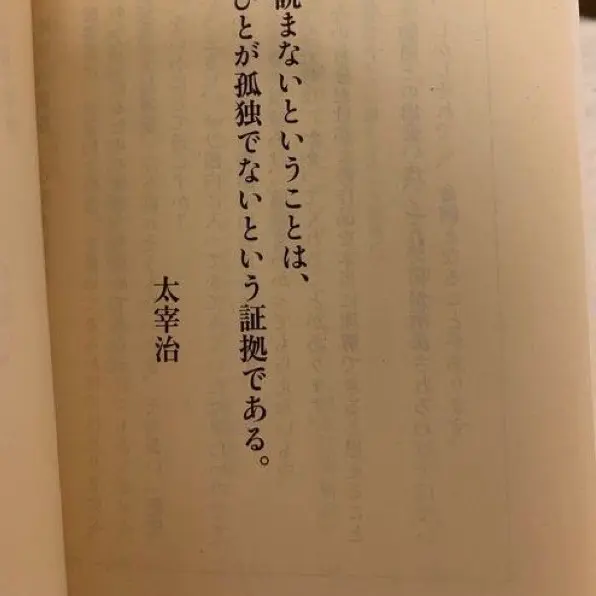 読まないということは、
ひとが孤独でないという証拠である。
太宰治